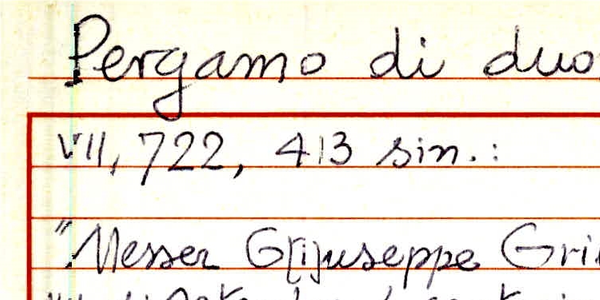 Pergamo di duo
VII, 722, 413 sin.:
"Messer G[i]useppe Gri